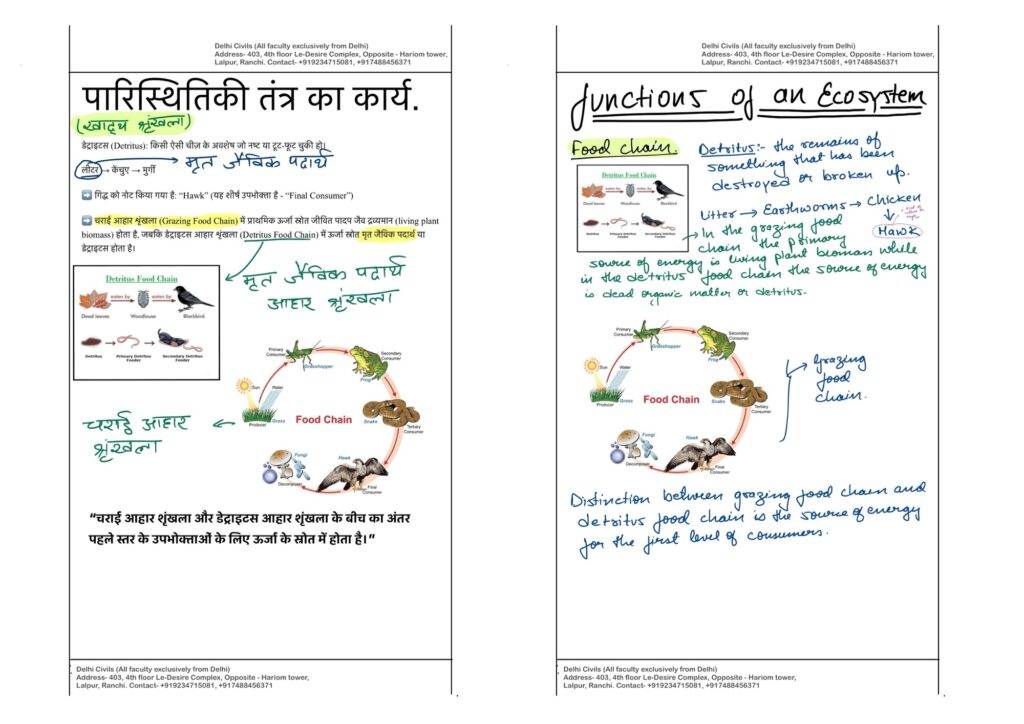 Delhi Civils (All faculty exclusively from Delhi)
Address- 403, 4th floor Le-Desire Complex, Opposite - Hariom tower,
Lalpur, Ranchi. Contact- +919234715081, +917488456371
पारिस्थितिकी तंत्र का कार्य.
(खाद्य श्रृंखला)
डेट्राइटस (Detritus): किसी ऐसी चीज़ के अवशेष जो नष्ट या टूट-फूट चुकी हो।
मृत जैविक पदार्थ
लीटर → केंचुए → मुर्गी
➡ गिद्ध को नोट किया गया है: “Hawk” (यह शीर्ष उपभोक्ता है - “Final Consumer”)
➡ चराई आहार श्रृंखला (Grazing Food Chain) में प्राथमिक ऊर्जा स्रोत जीवित पादप जैव द्रव्यमान (living plant
biomass) होता है, जबकि डेट्राइटस आहार श्रृंखला (Detritus Food Chain) में ऊर्जा स्रोत मृत जैविक पदार्थ या
डेट्राइटस होता है।
मृत जैविक पदार्थ
आहार श्रृंखला
Detritus Food Chain
eaten by eaten by
Dead leaves Woodlouse Blackbird
Detritus Primary Detritus Feeder Secondary Detritus Feeder
Primary Consumer
Grasshopper
Secondary Consumer
Frog
Sun Water
Producer Grass
Food Chain
Snake
Tertiary Consumer
Hawk
Final Consumer
Fungi
Decomposer
चराई आहार
श्रृंखला
“चराई आहार श्रृंखला और डेट्राइटस आहार श्रृंखला के बीच का अंतर
पहले स्तर के उपभोक्ताओं के लिए ऊर्जा के स्रोत में होता है।”
Delhi Civils (All faculty exclusively from Delhi)
Address- 403, 4th floor Le-Desire Complex, Opposite - Hariom tower,
Lalpur, Ranchi. Contact- +919234715081, +917488456371
Delhi Civils (All faculty exclusively from Delhi)
Address- 403, 4th floor Le-Desire Complex, Opposite - Hariom tower,
Lalpur, Ranchi. Contact- +919234715081, +917488456371
functions of an Ecosystem
Food chain.
Detritus:- the remains of
something that has been
destroyed or broken up.
Litter → Earthworms → Chicken
Hawk
Detritus Food Chain
eaten by eaten by
Dead leaves Woodlouse Blackbird
Detritus Primary Detritus Feeder Secondary Detritus Feeder
→ In the grazing food
chain the primary
source of energy is living plant biomass while
in the detritus food chain the source of energy
is dead organic matter or detritus.
Primary Consumer
Grasshopper
Secondary Consumer
Frog
Sun Water
Producer Grass
Food Chain
Snake
Tertiary Consumer
Hawk
Final Consumer
Fungi
Decomposer
Grazing
food
chain.
Distinction between grazing food chain and
detritus food chain is the source of energy
for the first level of consumers.
Delhi Civils (All faculty exclusively from Delhi)
Address- 403, 4th floor Le-Desire Complex, Opposite - Hariom tower,
Lalpur, Ranchi. Contact- +919234715081, +917488456371